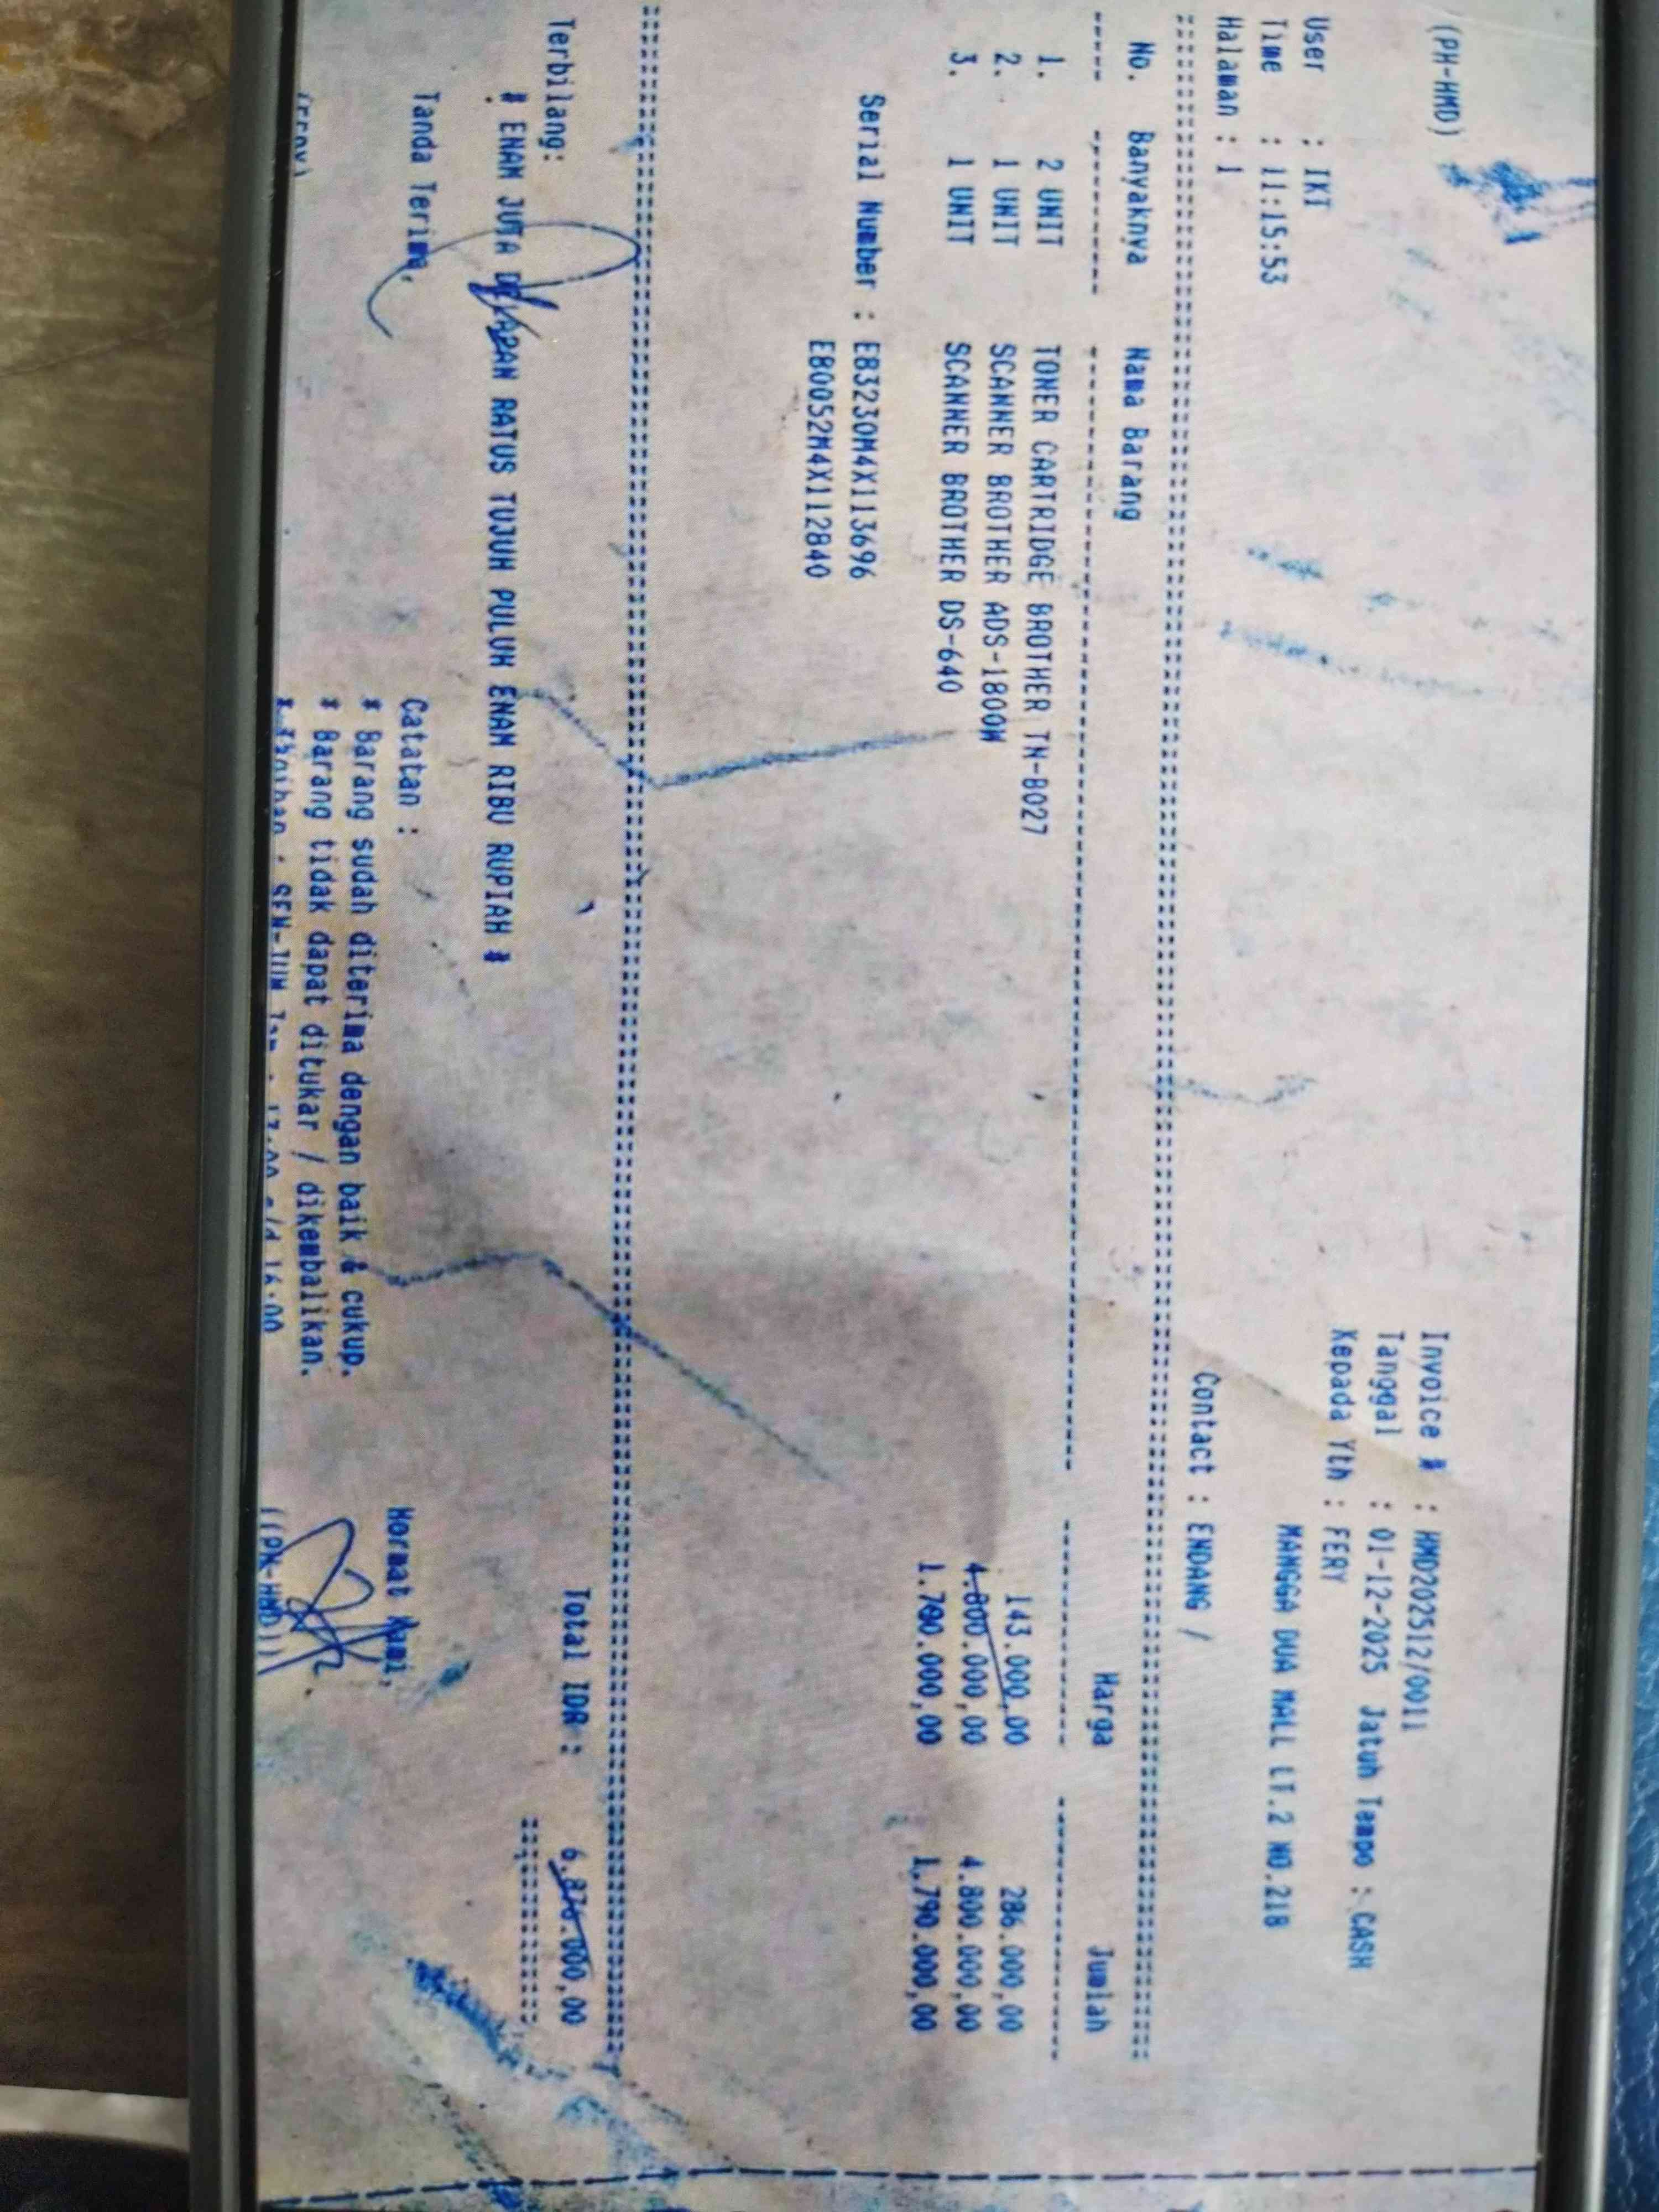 (PH-HMD)
Invoice # : HMD202512/0011
Tanggal : 01-12-2025 Jatuh Tempo : CASH
User : IKI Kepada Yth : FERY
Time : 11:15:53 MANGGA DUA MALL LT.2 NO.21B
Halaman : 1
Contact : ENDANG /
No. Banyaknya Nama Barang Harga Jumlah
1. 2 UNIT TONER CARTRIDGE BROTHER TN-B027 143.000,00 286.000,00
2. 1 UNIT SCANNER BROTHER ADS-1800W 4.800.000,00 4.800.000,00
3. 1 UNIT SCANNER BROTHER DS-640 1.790.000,00 1.790.000,00
Serial Number : E83230M4X113696
E80052M4X112840
Terbilang: Total IDR : 6.876.000,00
# ENAM JUTA DELAPAN RATUS TUJUH PULUH ENAM RIBU RUPIAH #
Tanda Terima, Catatan : Hormat Kami,
# Barang sudah diterima dengan baik & cukup.
# Barang tidak dapat ditukar / dikembalikan.
(FERY) SEN-JUM Jam : 13:00 s/d 16:00 ((PH-HMD))